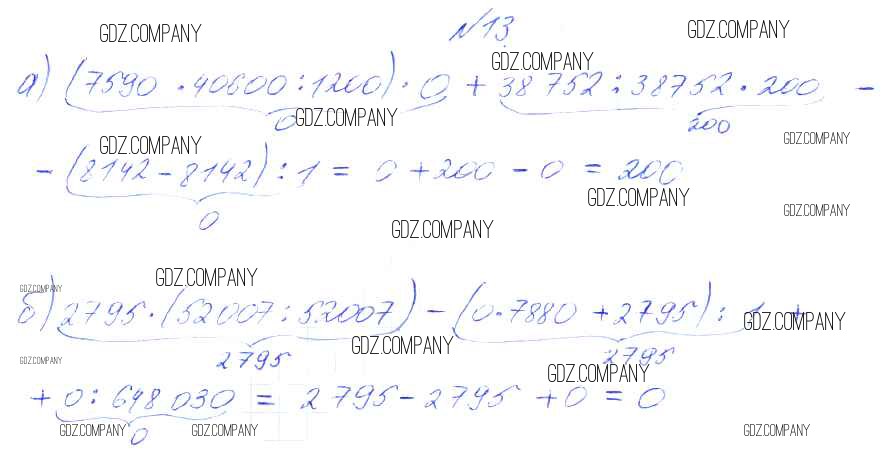 GDZ.COMPANY
№13
GDZ.COMPANY
GDZ.COMPANY
а) (7590 · 40600 : 1200) · 0 + 38752 : 38752 · 200 -
0
GDZ.COMPANY
200
GDZ.COMPANY
GDZ.COMPANY
- (8142 - 8142) : 1 = 0 + 200 - 0 = 200
0
GDZ.COMPANY
GDZ.COMPANY
GDZ.COMPANY
GDZ.COMPANY
GDZ.COMPANY
б) 2795 · (52007 : 52007) - (0 · 7880 + 2795) : 1 +
GDZ.COMPANY
2795
GDZ.COMPANY
2795
GDZ.COMPANY
GDZ.COMPANY
+ 0 : 648 030 = 2795 - 2795 + 0 = 0
0
GDZ.COMPANY
GDZ.COMPANY
GDZ.COMPANY